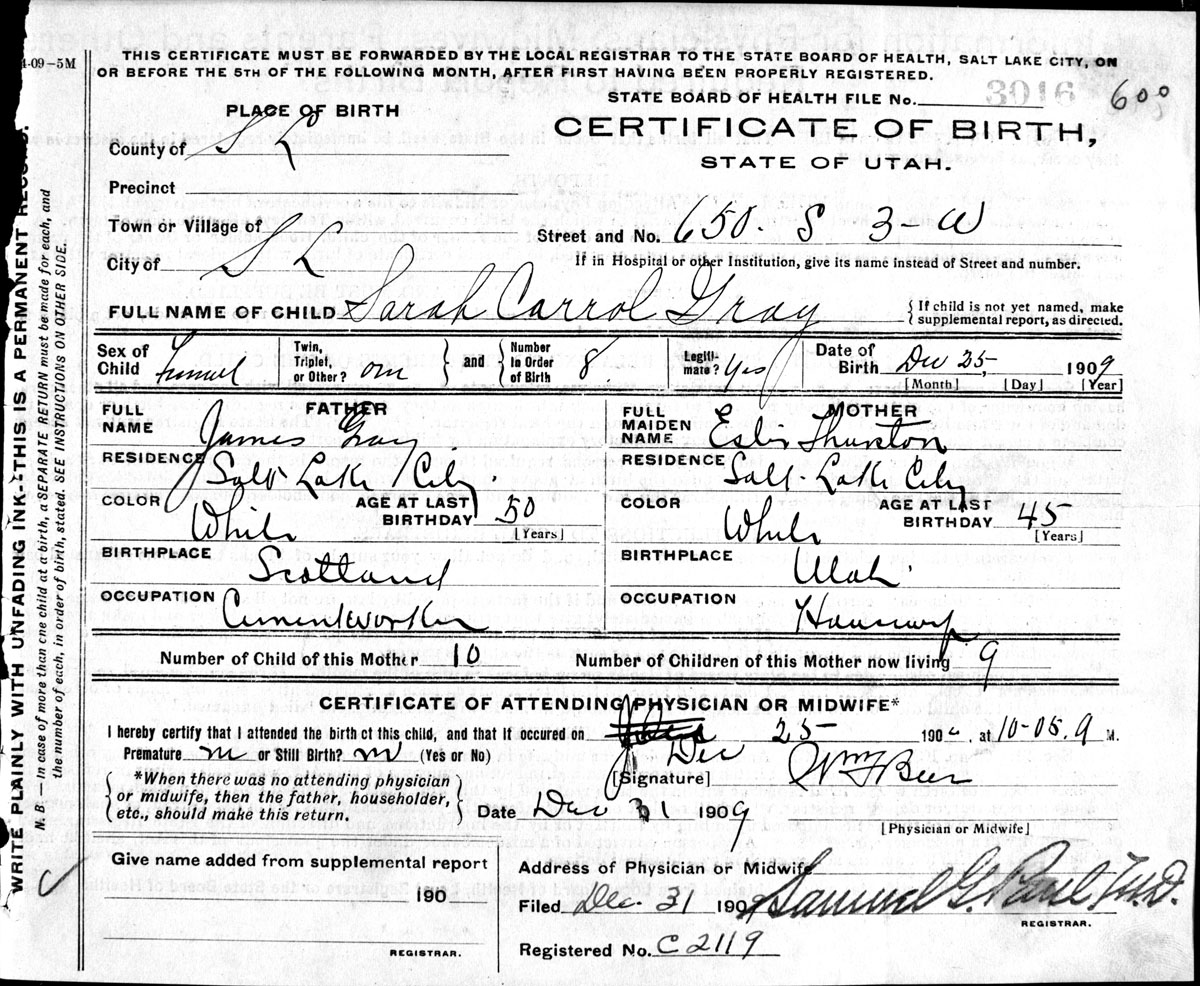 4-09-5M
THIS CERTIFICATE MUST BE FORWARDED BY THE LOCAL REGISTRAR TO THE STATE BOARD OF HEALTH, SALT LAKE CITY, ON
OR BEFORE THE 5TH OF THE FOLLOWING MONTH, AFTER FIRST HAVING BEEN PROPERLY REGISTERED.
STATE BOARD OF HEALTH FILE No. 3016 600
PLACE OF BIRTH
CERTIFICATE OF BIRTH,
STATE OF UTAH.
County of S L
Precinct
Town or Village of
Street and No. 650. S 3-W
City of S L
If in Hospital or other Institution, give its name instead of Street and number.
FULL NAME OF CHILD Sarah Carrol Gray { If child is not yet named, make supplemental report, as directed.
Sex of Child Twin, Triplet, or Other? and Number in Order of Birth 8. Legiti-mate? Yes Date of Birth Dec 25, 1909
[Month] [Day] [Year]
FATHER
FULL NAME James Gray
RESIDENCE Salt Lake City.
COLOR White AGE AT LAST BIRTHDAY 50
[Years]
BIRTHPLACE Scotland
OCCUPATION Cementworker
MOTHER
FULL MAIDEN NAME
RESIDENCE Salt Lake City
COLOR White AGE AT LAST BIRTHDAY 45
[Years]
BIRTHPLACE Utah
OCCUPATION Housewife
Number of Child of this Mother 10 Number of Children of this Mother now living 9
CERTIFICATE OF ATTENDING PHYSICIAN OR MIDWIFE*
I hereby certify that I attended the birth of this child, and that it occured on Dec 25 190 , at 10-05. M.
Premature or Still Birth? (Yes or No)
*When there was no attending physician
or midwife, then the father, householder,
etc., should make this return.
[Signature] Wm F Beer
Date Dec 31 1909
[Physician or Midwife]
Give name added from supplemental report
190
REGISTRAR.
Address of Physician or Midwife
Filed Dec. 31 1909 Samuel G. Paul, M.D.
REGISTRAR.
Registered No. C 2119
WRITE PLAINLY WITH UNFADING INK-THIS IS A PERMANENT RECORD.
N. B. In case of more than one child at a birth, a SEPARATE RETURN must be made for each, and
the number of each, in order of birth, stated. SEE INSTRUCTIONS ON OTHER SIDE.